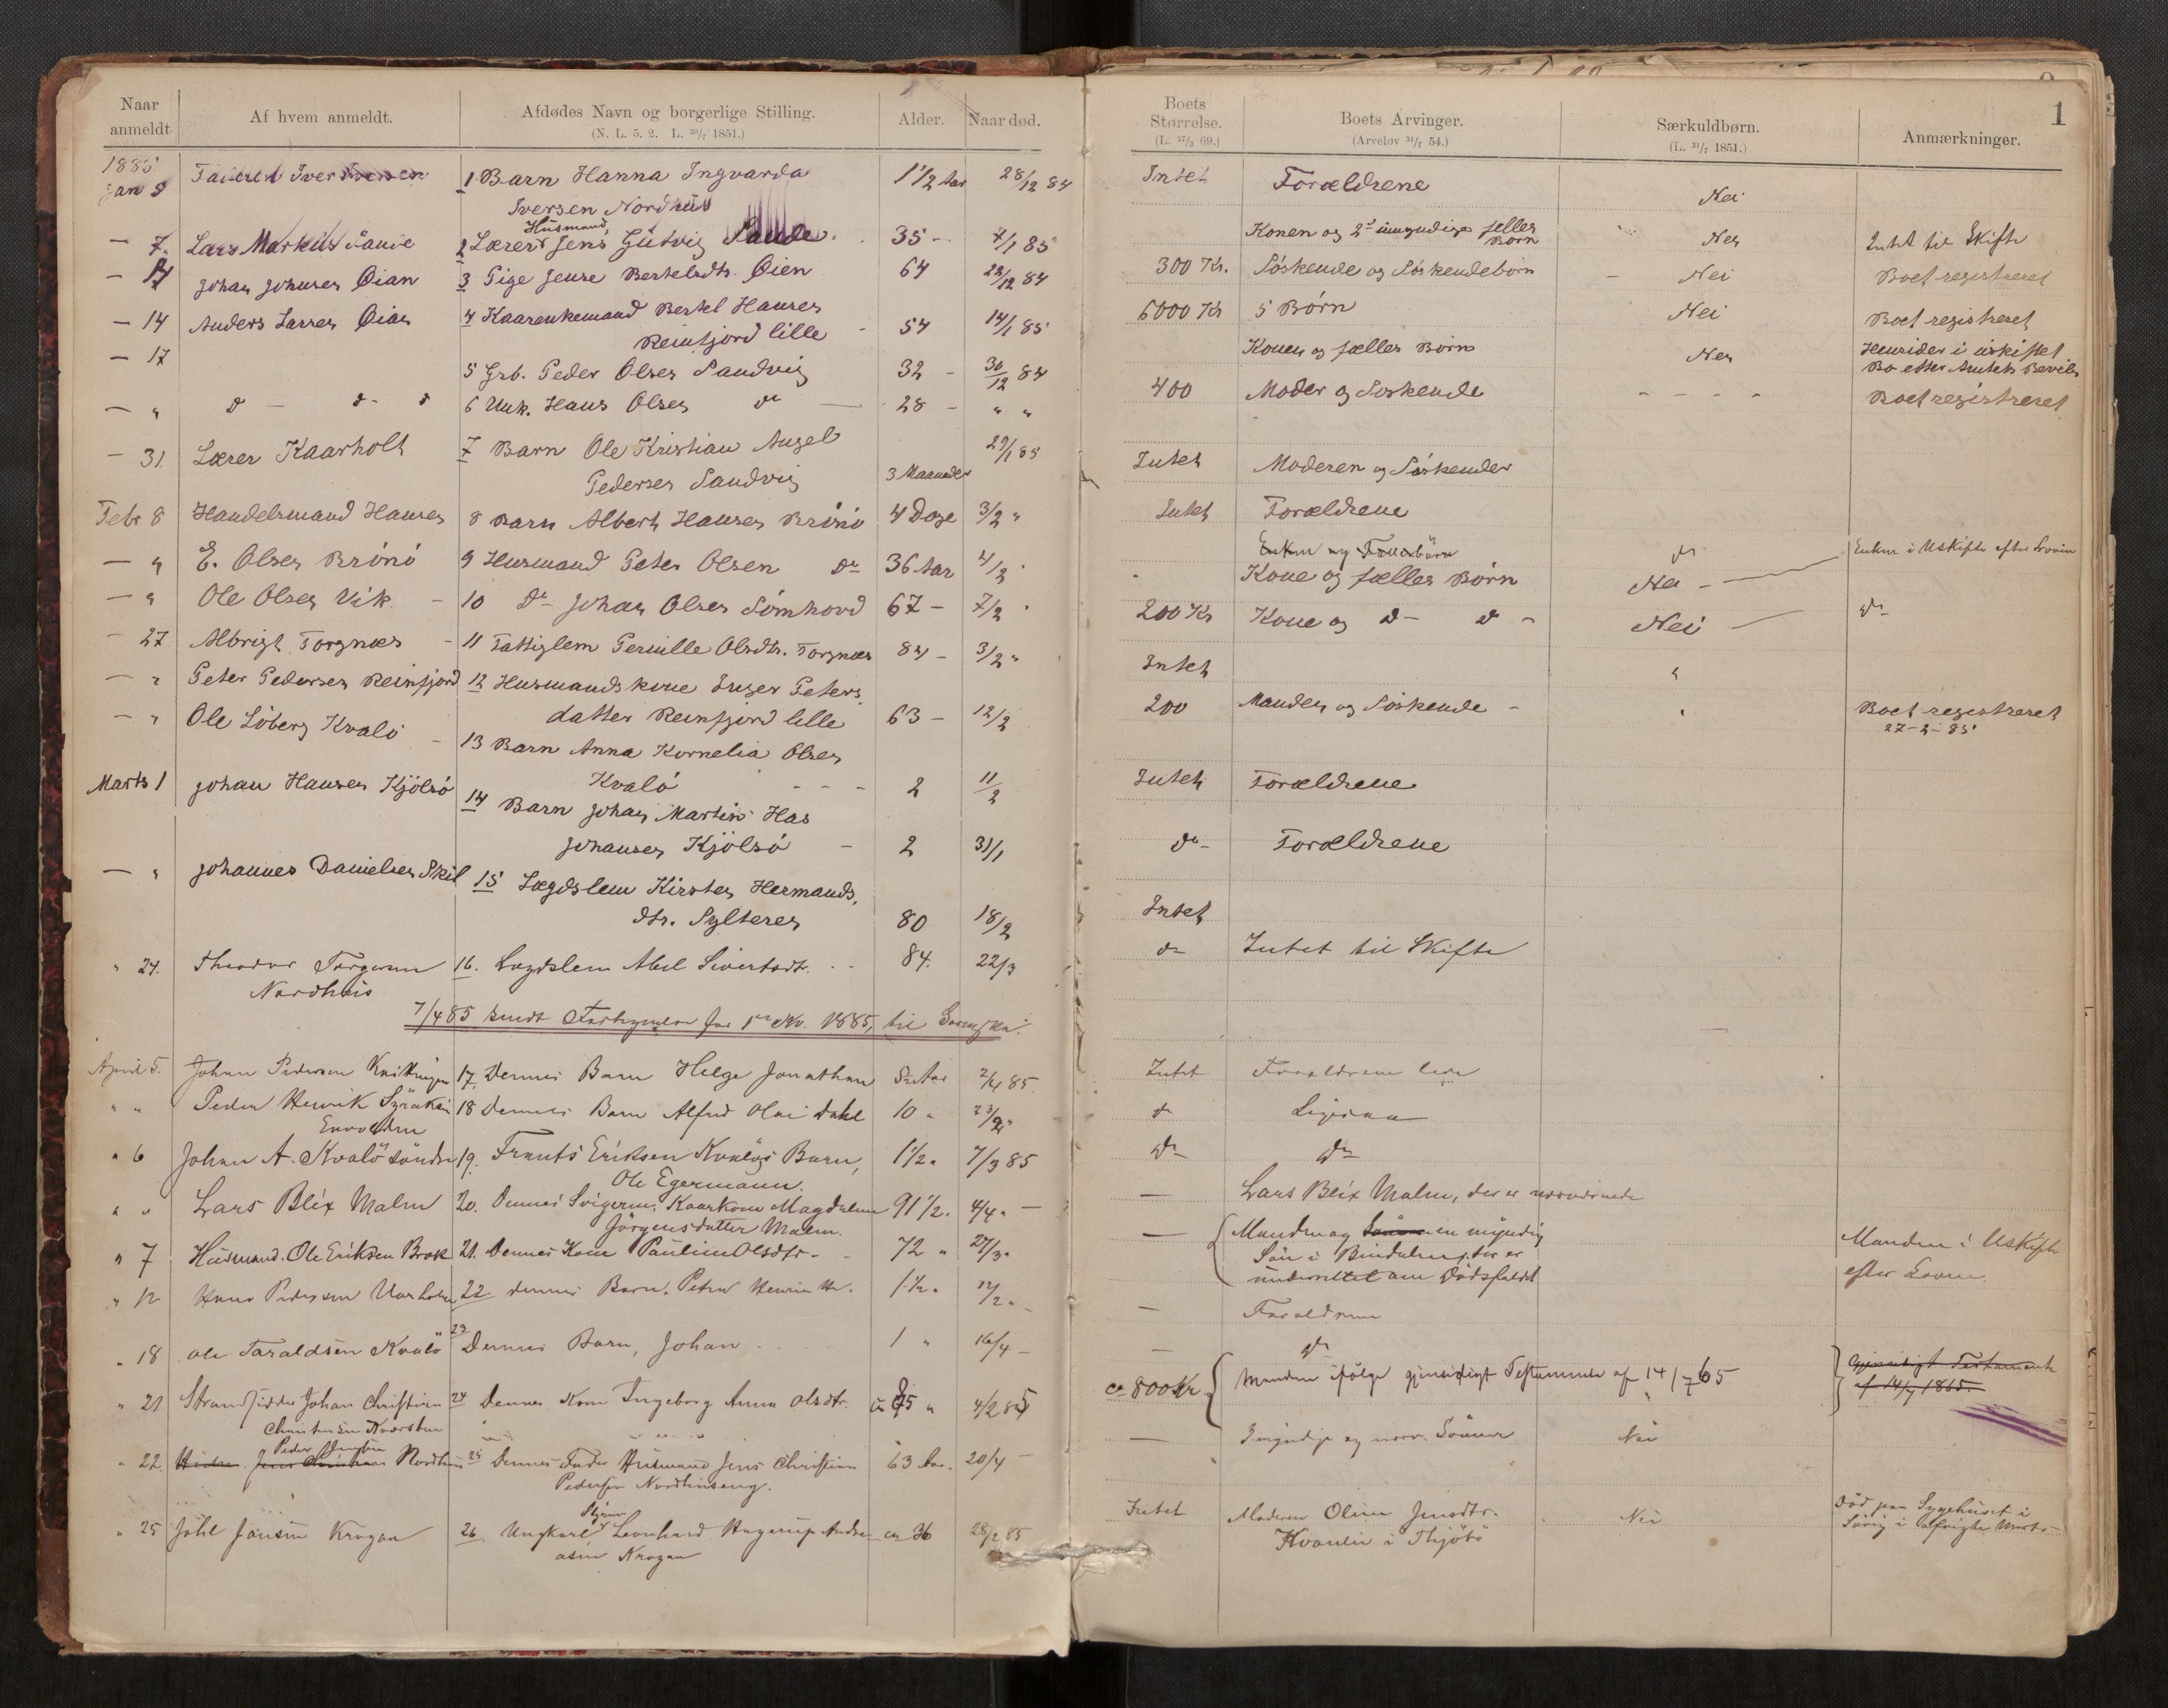 Naar anmeldt
Af hvem anmeldt.
Afdødes Navn og borgerlige Stilling.
(N. L. 5. 2. L. 30/7 1851.)
Alder.
Naar død.
1885
Jan 5 Faderen Iver Iversen 1 Barn Hanna Ingvarda 1 1/2 Aar 28/12 84
Iversen Nordhus
Husmand
— 7. Lars Markus Saue 2 Lærer Jens Gutvig Saude 35 - 4/1 85
— 14 Johan Johnsen Øian 3 Pige Jense Bertelsdtr. Øien 64 23/12 84
— 14 Anders Larsen Øian 4 Kaarenkemand Bertel Hansen
Reinfjord lille - 54 14/1 85
— 17 5 Grb. Peder Olsen Sandvig 32 - 30/12 84
— " d - d - d 6 Unk. Hans Olsen do — 28 - " "
— 31 Lærer Kaarholt 7 Barn Ole Kristian Angel 29/1 85
Pedersen Sandvig 3 Maaneder
Febr 8 Handelsmand Hansen 8 Barn Albert Hansen Brönö 4 Dage 3/2 "
— " E. Olsen Brönö 9 Husmand Peter Olsen do 36 Aar 4/2 "
— " Ole Olsen Vik - 10 do Johan Olsen Sömhovd 67 - 7/2 "
— 27 Albrigt Torgnæs - 11 Fattiglem Pernille Olsdtr. Torgnæs 84 - 3/2 "
— " Peter Pedersen Reinfjord 12 Husmandskone Inger Peters
datter Reinfjord lille 63 - 12/2
— " Ole Löberg Kvalö - 13 Barn Anna Kornelia Olsen
Kvalö - - - 2 11/2
Marts 1 Johan Hansen Kjölsö 14 Barn Johan Martin Has
Johansen Kjölsö - 2 31/1
— " Johannes Danielsen Skil 15 Lægdslem Kirsten Hermands,
dtr. Sylteren 80 18/2
" 24. Theodor Torgersen 16. Lægdslem Abel Sivertsdt. 84. 22/3
Nordhus
7/4 85 sendt Fortegnelse for 1ste Kv. 1885, til
April 5. Johan Pedersen 17. Dennes Barn Helge Jonathan Aar 2/4 85
" " Peder Henrik 18 Dennes Barn Alfred Olai Dahl 10 "
" 6 Johan A. Kvalö söndre 19. Frants Eriksen Kvalös Barn, 1 1/2 " 7/3 85
Ole Egermann.
" " Lars Blix Malm 20. Dennes Svigerm. Kaarkone Magdalena 91 1/2. 4/4 " —
Jörgensdatter Malm.
" 7 Husmand. Ole Eriksen Brok 21. Dennes Kone Pauline Olsdtr. - 72 " 27/3 "
" 12 Hans Pedersen 22. Dennes Barn, Petra 1 1/2 "
" 18 Ole Taraldsen Kvalö 23 Dennes Barn, Johan 1 " 16/4 —
" 21 Strandsidder Johan Christian 24 Dennes Kone Ingeborg Anna Olsdtr. 75 " 4/2 85
Christensen
Peder Jensen
" 22. Jens Christian Nordhus 25 Dennes Fader Husmand Jens Christian 63 Aar. 20/4 —
Pedersen Nordhuseng.
Skjöner
" 25 Johl Jonsen Krogan 26. Ungkarl Leonhard Hagerup Andre ca 36 28/2 85
asen Krogan
1
Boets Størrelse.
(L. 27/3 69.)
Boets Arvinger.
(Arvelov 31/7 54.)
Særkuldbørn.
(L. 31/7 1851.)
Anmærkninger.
Intet Forældrene Nei
Konen og 2 umyndige fælles Børn Nei Intet til Skifte
300 Kr. Söskende og Söskendebörn — Nei Boet registreret
6000 Kr 5 Börn Nei Boet registreret
Konen og fælles Börn Nei Hensider i uskiftet
Bo efter Amtets Bevilg
400 Moder og Söskende - - - - Boet registreret
Intet Moderen og Söskender
Intet Forældrene
Enken og Fællesbörn do Enken i Uskifte efter Loven
Kone og fælles Börn Nei —
200 Kr Kone og d - d - Nei — do
Intet "
200 Manden og Söskende - " Boet registreret
27-2-85
Intet Forældrene
do - Forældrene
Intet
do Intet til Skifte
Intet Forældrene leve
do Ligesaa
do do
— Lars Blix Malm, der er nærværende
— Manden og en myndig
Sön i Bindalen, der er
underrettet om Dödsfaldet Manden i Uskifte
efter Loven.
— Forældrene
— do
ca 800 Kr. Manden ifölge gjensidigt Testamente af 14/7 65 Gjensidigt Testamente
af 14/7 1865.
— 3 myndige og nærv. Sönner Nei
Intet Moderen Oline Jensdtr. Nei Död paa Sygehuset i
Kvanlie i Thjötö